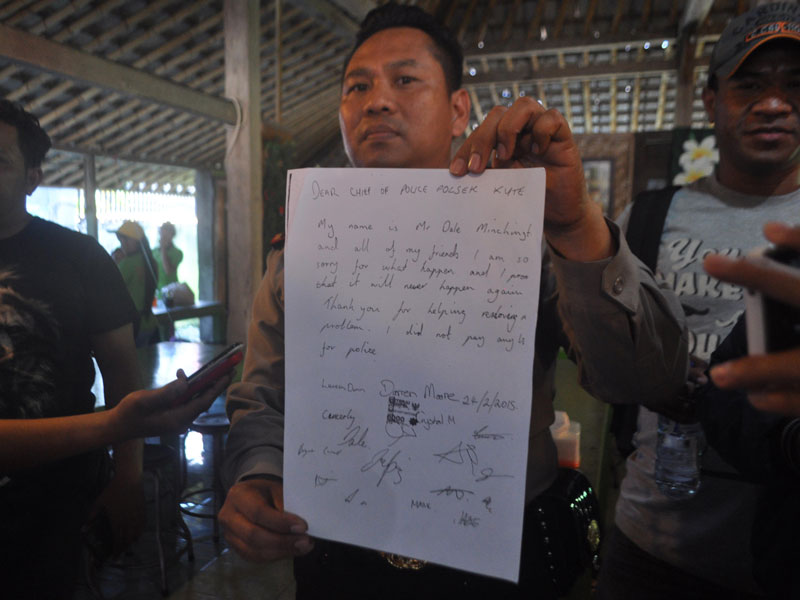 DEAR CHIEF OF POLICE POLSEK KUTE
My name is Mr Dale Minchingt
and all of my friends I am so
sorry for what happen and I prom
that it will never happen again
Thank you for helping resolving a
problem. I did not pay any
for police
Darren Moore 24/2/2015
Crystal M
MARK
You
MAKE